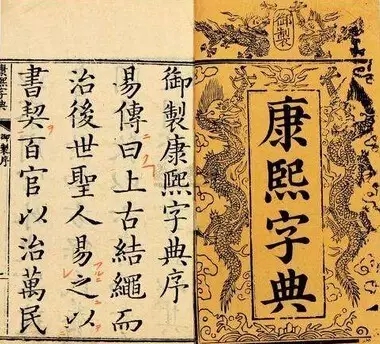 御製
康熙字典
御製康熙字典序
易傳曰上古結繩而
治後世聖人易之以
書契百官以治萬民
康熙字典
御製序